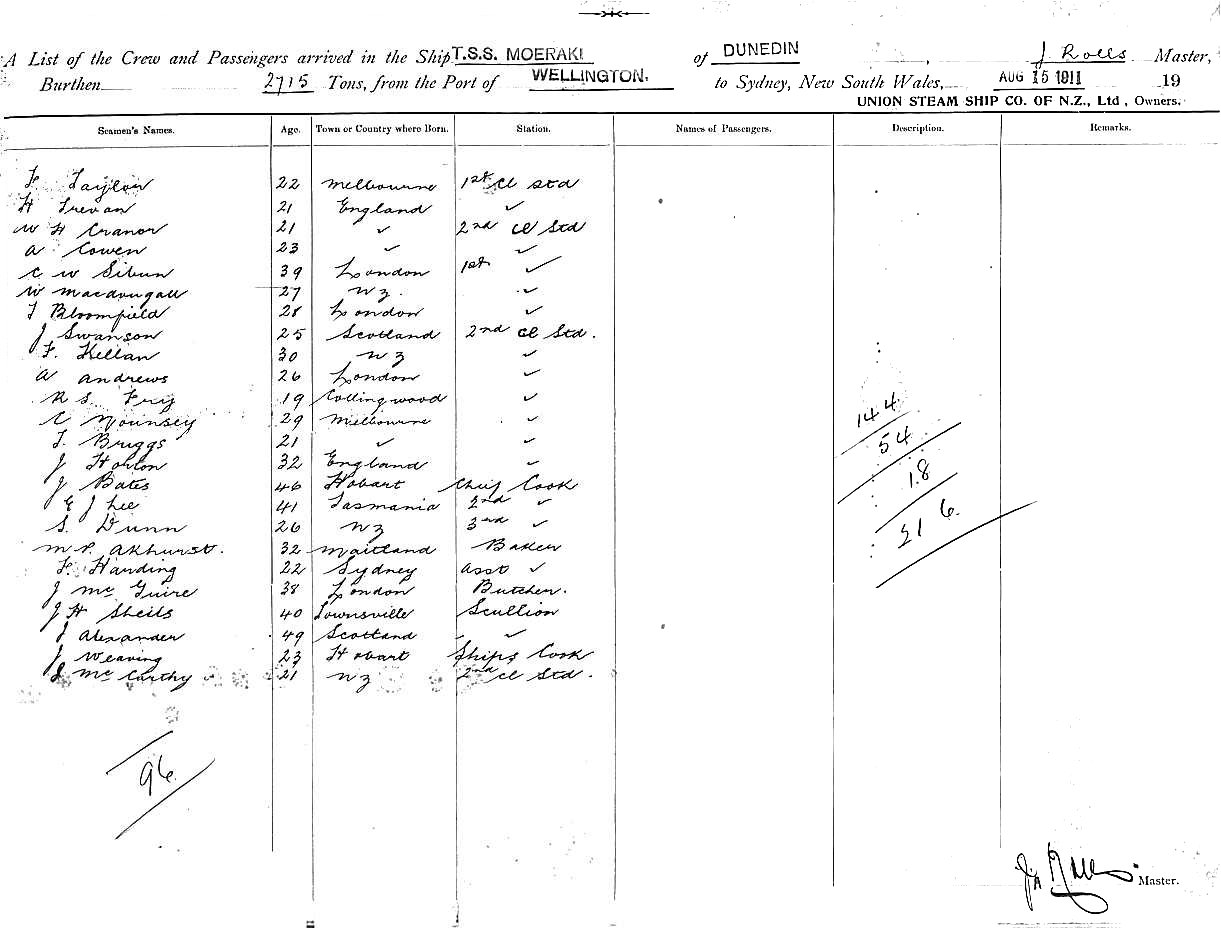 A List of the Crew and Passengers arrived in the Ship T.S.S. MOERAKI of DUNEDIN, J Rolls Master,
Burthen 2715 Tons, from the Port of WELLINGTON. to Sydney, New South Wales, AUG 15 1911 19
UNION STEAM SHIP CO. OF N.Z., Ltd, Owners.
Seamen's Names. Age. Town or Country where Born. Station. Names of Passengers. Description. Remarks.
F Taylor 22 Melbourne 1st Cl Std
H Trevan 21 England ✓
W H Cranor 21 ✓ 2nd Cl Std
A Cowen 23 ✓ ✓
C W Sibun 39 London 1st ✓
W Macdougall 27 NZ. ✓
T Bloomfield 28 London ✓
J Swanson 25 Scotland 2nd Cl Std.
F. Kellan 30 NZ ✓
A Andrews 26 London ✓
R S Fry 19 Collingwood ✓
C Mounsey 29 Melbourne ✓
T. Briggs 21 ✓ ✓
J Horton 32 England ✓
J Bates 46 Hobart Chief Cook
E J Lee 41 Tasmania 2nd ✓
S. Dunn 26 NZ 3rd ✓
M. P. Akhurst. 32 Maitland Baker
F. Harding 22 Sydney Asst ✓
J McGuire 38 London Butcher.
J H Sheils 40 Townsville Scullion
J Alexander 49 Scotland ✓
J Weaving 23 Hobart Ships Cook
J McCarthy 21 NZ 2nd Cl Std.
144
54
18
216.
96
J A Rolls Master.